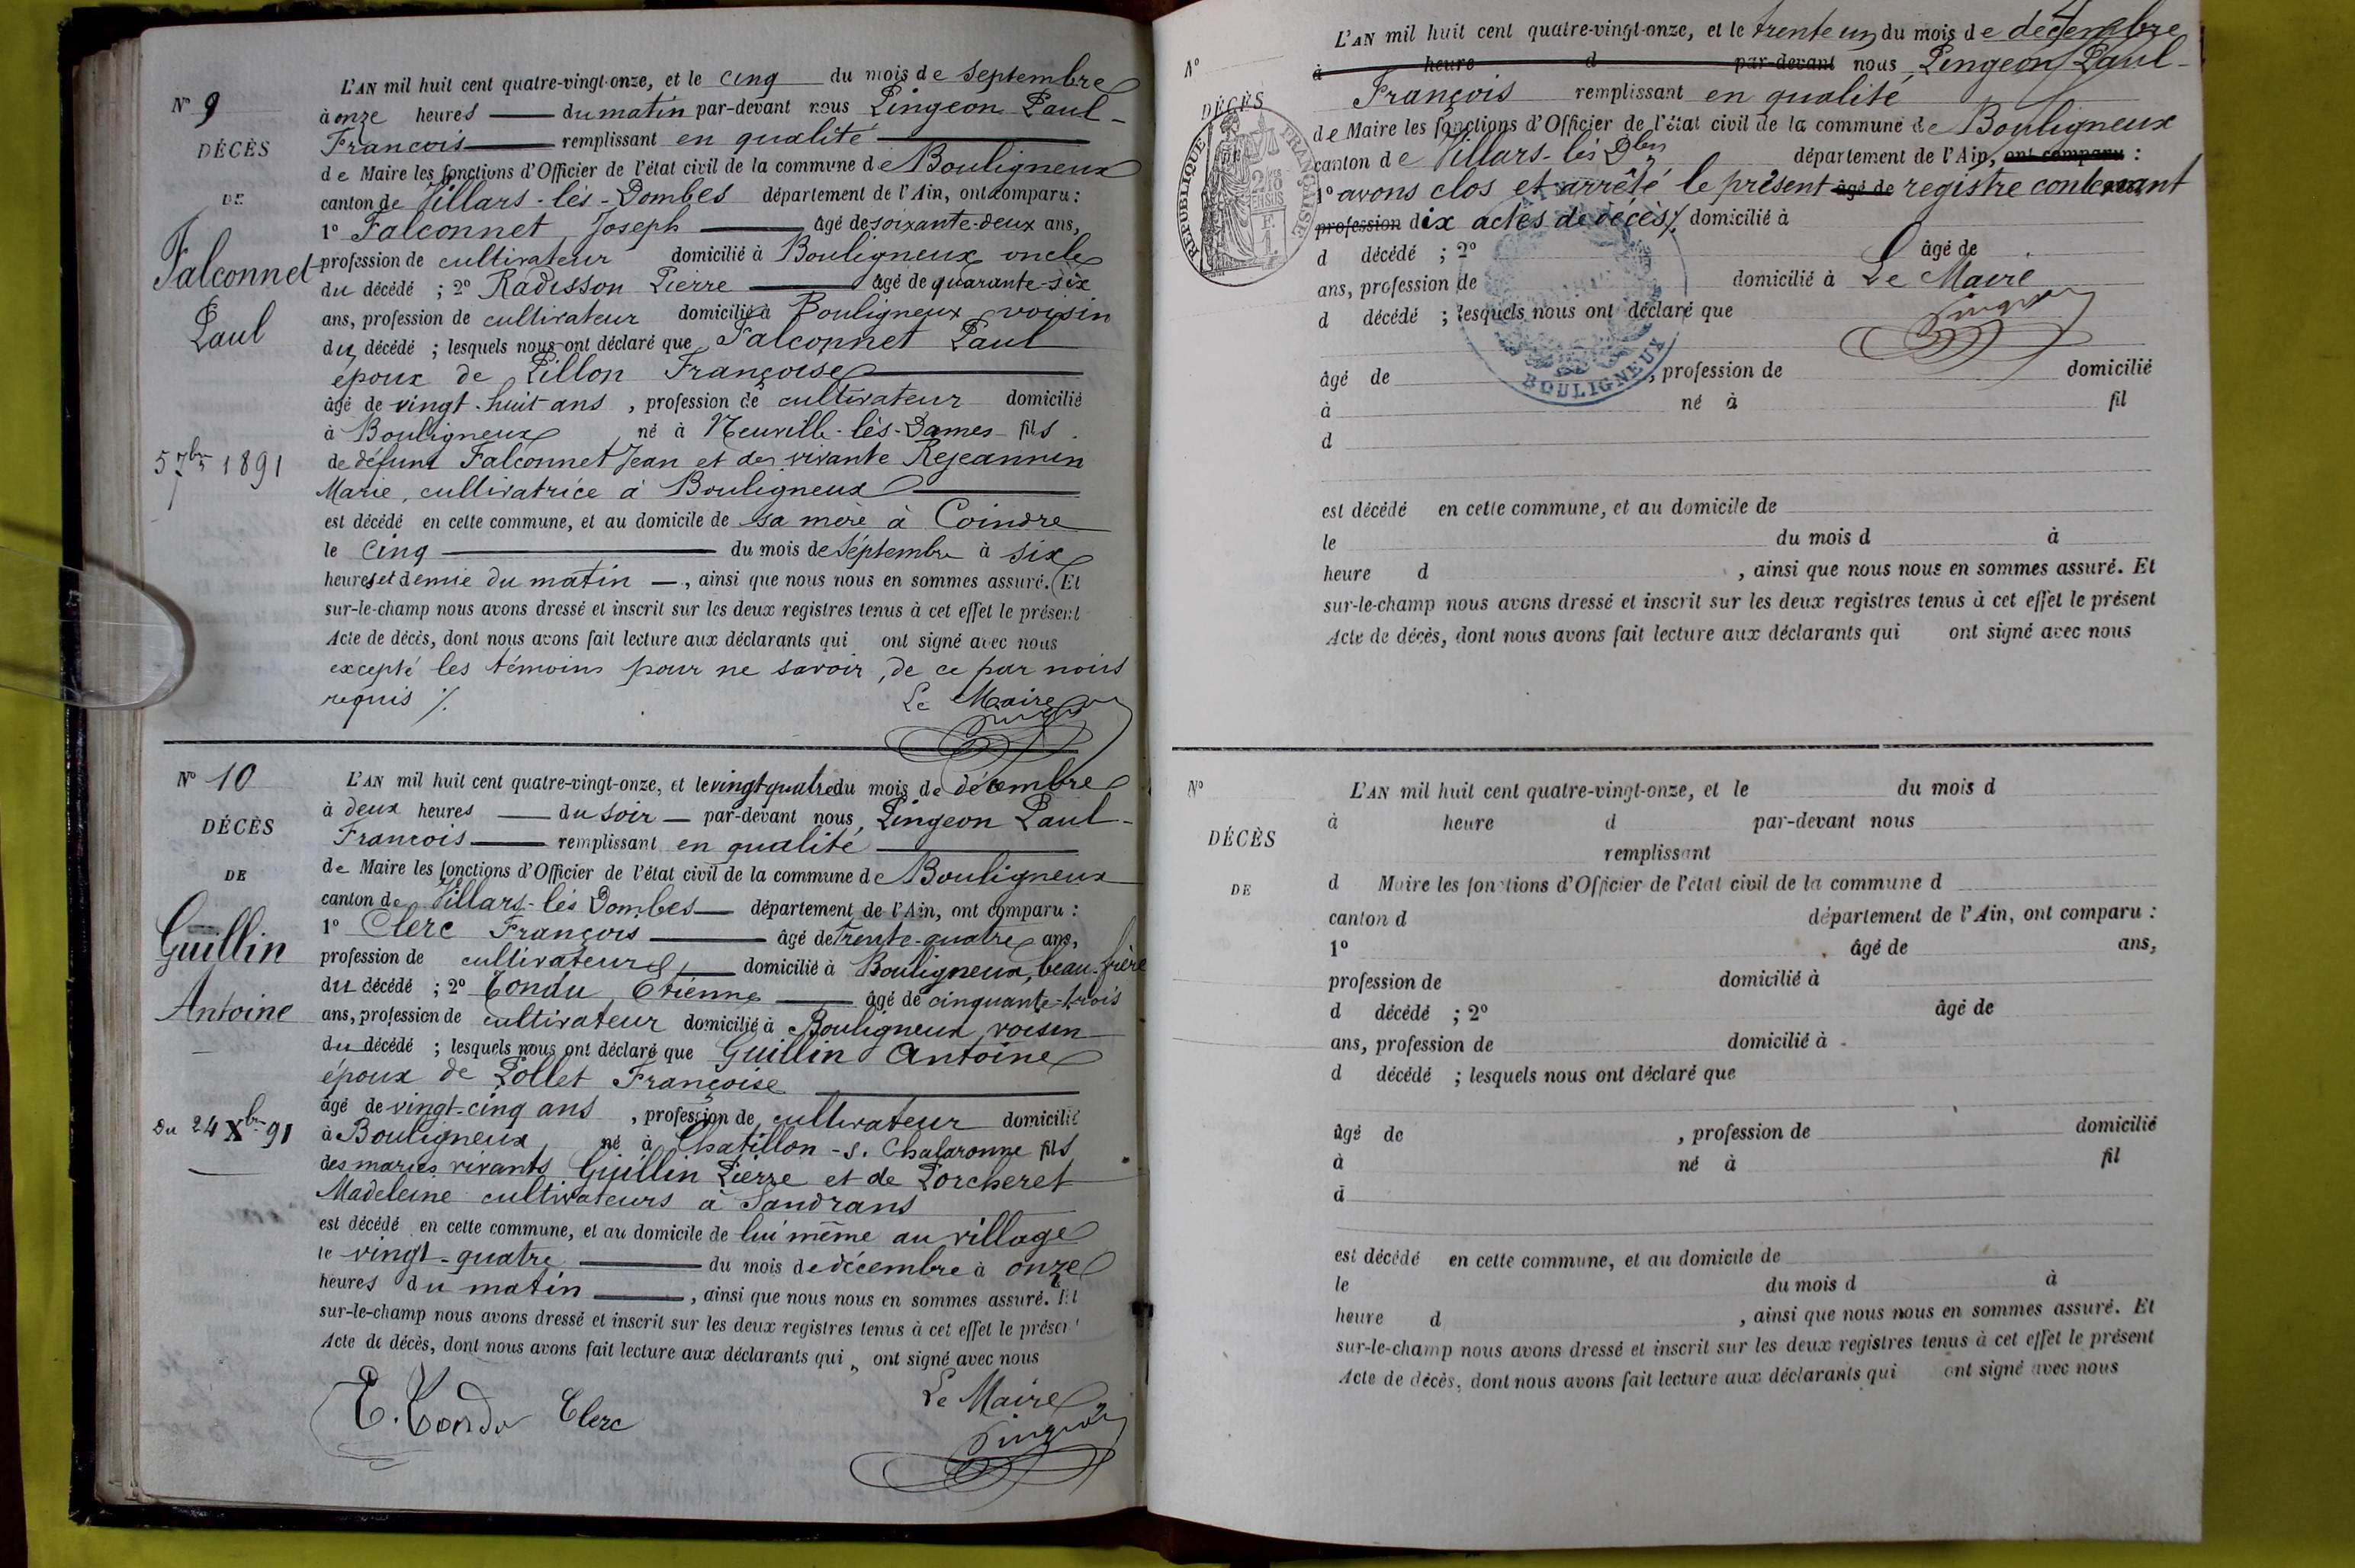 N° 9
DÉCÈS
DE
Falconnet
Paul
5 7bre 1891
L'AN mil huit cent quatre-vingt-onze, et le cinq du mois de septembre
à onze heures du matin par-devant nous Pingeon Paul-
François remplissant en qualité
de Maire les fonctions d'Officier de l'état civil de la commune de Bouligneux
canton de Villars-lès-Dombes département de l'Ain, ont comparu :
1° Falconnet Joseph âgé de soixante-deux ans,
profession de cultivateur domicilié à Bouligneux oncle
du décédé ; 2° Radisson Pierre âgé de quarante-six
ans, profession de cultivateur domicilié à Bouligneux voisin
du décédé ; lesquels nous ont déclaré que Falconnet Paul
époux de Pillon Françoise
âgé de vingt-huit ans , profession de cultivateur domicilié
à Bouligneux né à Neuville-lès-Dames fils
de défunt Falconnet Jean et de vivante Rejeannin
Marie, cultivatrice à Bouligneux
est décédé en cette commune, et au domicile de sa mère à Coindre
le cinq du mois de septembre à six
heures et demie du matin , ainsi que nous nous en sommes assuré. Et
sur-le-champ nous avons dressé et inscrit sur les deux registres tenus à cet effet le présent
Acte de décès, dont nous avons fait lecture aux déclarants qui ont signé avec nous
excepté les témoins pour ne savoir, de ce par nous
requis ./.
Le Maire
Pingeon
N° 10
DÉCÈS
DE
Guillin
Antoine
Du 24 Xbre 91
L'AN mil huit cent quatre-vingt-onze, et le vingt quatre du mois de décembre
à deux heures du soir par-devant nous, Pingeon Paul-
François remplissant en qualité
de Maire les fonctions d'Officier de l'état civil de la commune de Bouligneux
canton de Villars-lès Dombes département de l'Ain, ont comparu :
1° Clerc François âgé de trente-quatre ans,
profession de cultivateur domicilié à Bouligneux, beau-frère
du décédé ; 2° Tondu Etienne âgé de cinquante-trois
ans, profession de cultivateur domicilié à Bouligneux, voisin
du décédé ; lesquels nous ont déclaré que Guillin Antoine
époux de Pollet Françoise
âgé de vingt-cinq ans , profession de cultivateur domicilié
à Bouligneux né à Chatillon-s. Chalaronne fils
des mariés vivants Guillin Pierre et de Porcheret
Madeleine cultivateurs à Sandrans
est décédé en cette commune, et au domicile de lui même au village
le vingt-quatre du mois de décembre à onze
heures du matin , ainsi que nous nous en sommes assuré. Et
sur-le-champ nous avons dressé et inscrit sur les deux registres tenus à cet effet le présent
Acte de décès, dont nous avons fait lecture aux déclarants qui ont signé avec nous
Le Maire
E. Tondu Clerc
Pingeon
N°
DÉCÈS
RÉPUBLIQUE FRANÇAISE
L'AN mil huit cent quatre-vingt-onze, et le trente un du mois de décembre
à heure d par-devant nous Pingeon Paul-
François remplissant en qualité
de Maire les fonctions d'Officier de l'état civil de la commune de Bouligneux
canton de Villars-lès Dbes département de l'Ain, ont comparu :
1° avons clos et arrêté le présent âgé de registre contenant
profession dix actes de décès ./. domicilié à
d décédé ; 2° âgé de
ans, profession de domicilié à Le Maire
d décédé ; lesquels nous ont déclaré que Pingeon
BOULIGNEUX
âgé de , profession de domicilié
à né à fil
d
est décédé en cette commune, et au domicile de
le du mois d à
heure d , ainsi que nous nous en sommes assuré. Et
sur-le-champ nous avons dressé et inscrit sur les deux registres tenus à cet effet le présent
Acte de décès, dont nous avons fait lecture aux déclarants qui ont signé avec nous
N°
DÉCÈS
DE
L'AN mil huit cent quatre-vingt-onze, et le du mois d
à heure d par-devant nous
remplissant
d Maire les fonctions d'Officier de l'état civil de la commune d
canton d département de l'Ain, ont comparu :
1° âgé de ans,
profession de domicilié à
d décédé ; 2° âgé de
ans, profession de domicilié à
d décédé ; lesquels nous ont déclaré que
âgé de , profession de domicilié
à né à fil
d
est décédé en cette commune, et au domicile de
le du mois d à
heure d , ainsi que nous nous en sommes assuré. Et
sur-le-champ nous avons dressé et inscrit sur les deux registres tenus à cet effet le présent
Acte de décès, dont nous avons fait lecture aux déclarants qui ont signé avec nous